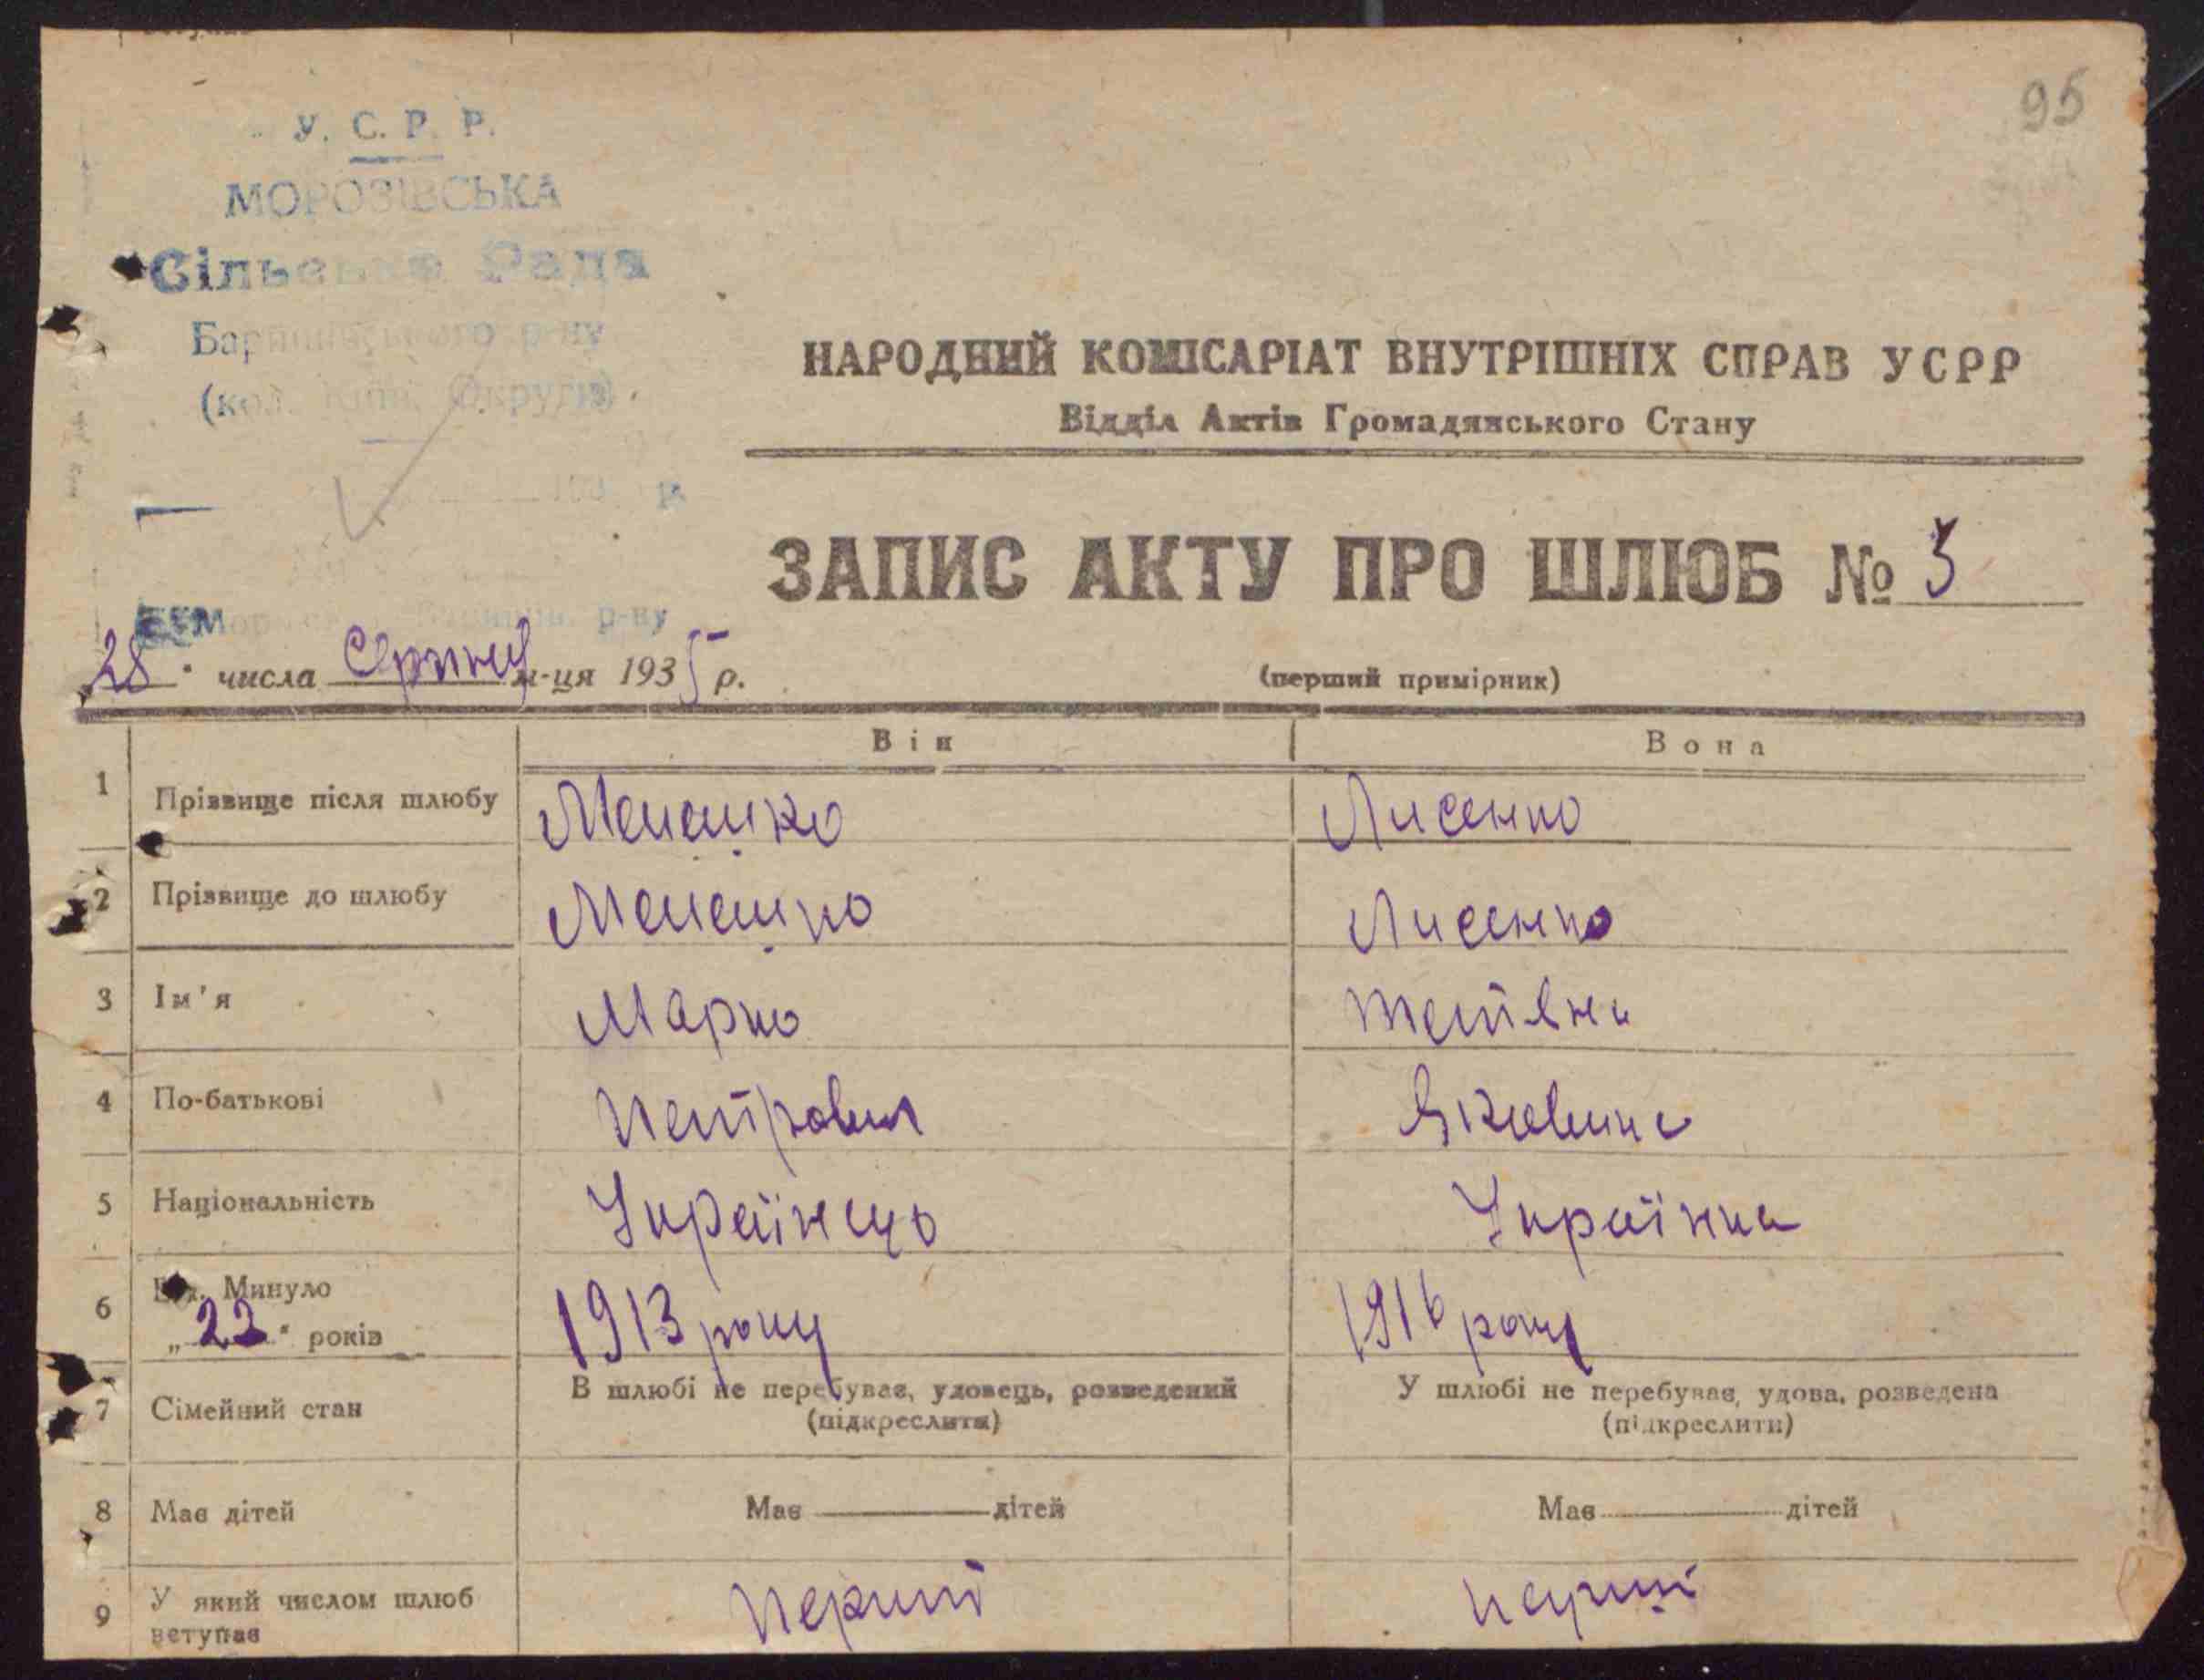 95
У. С. Р. Р.
МОРОЗІВСЬКА
Сільська Рада
Баришівського р-ну
(кол. Київ. Округи)
НАРОДНИЙ КОМІСАРІАТ ВНУТРІШНІХ СПРАВ УСРР
Відділ Актів Громадянського Стану
ЗАПИС АКТУ ПРО ШЛЮБ № 5
р-ну
28 " числа Серпня м-ця 1935 р.
(перший примірник)
Він Вона
1 Прізвище після шлюбу Лисенко
2 Прізвище до шлюбу Лисенко
3 Ім'я Марко Тетяна
4 По-батькові Петрович Яковина
5 Національність Українець Українка
6 Минуло „ 22 " років 1913 року 1916 року
7 Сімейний стан В шлюбі не перебуває, удовець, розведений (підкреслити) У шлюбі не перебуває, удова, розведена (підкреслити)
8 Має дітей Має дітей Має дітей
9 У який числом шлюб вступає Перший Перший